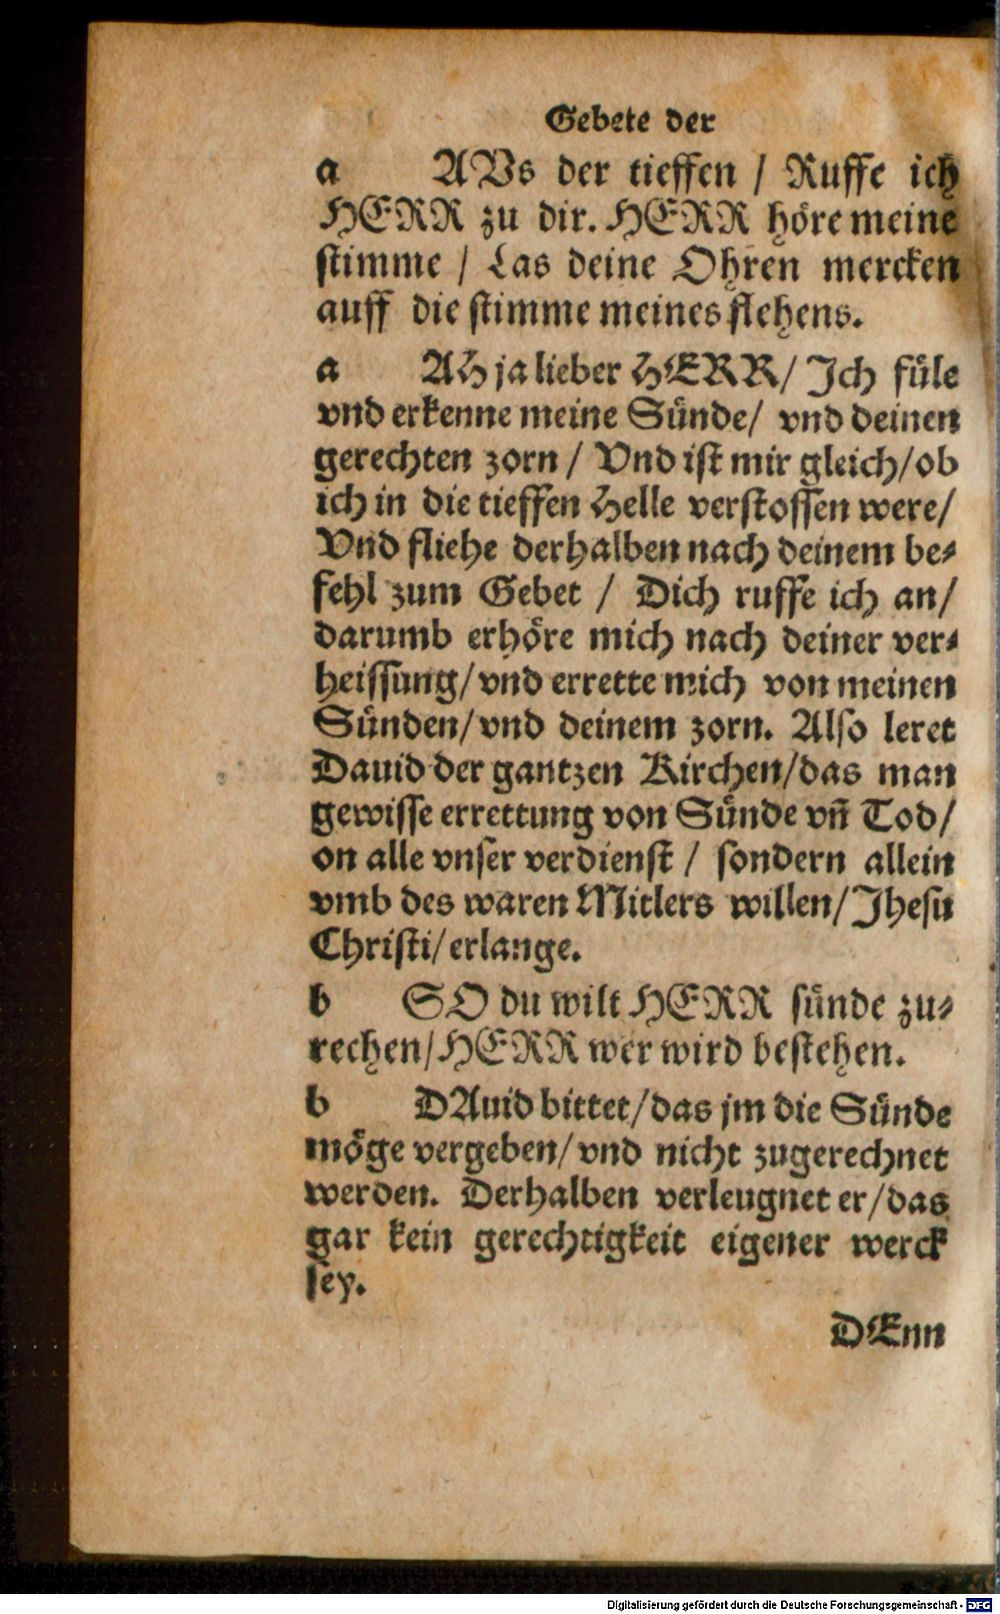 Gebete der
a AVs der tieffen / Ruffe ich
HERR zu dir. HERR höre meine
stimme / Las deine Ohren mercken
auff die stimme meines flehens.
a AH ja lieber HERR / Ich füle
vnd erkenne meine Sünde / vnd deinen
gerechten zorn / Vnd ist mir gleich / ob
ich in die tieffen Helle verstossen were /
Vnd fliehe derhalben nach deinem be⸗
fehl zum Gebet / Dich ruffe ich an /
darumb erhöre mich nach deiner ver⸗
heissung / vnd errette mich von meinen
Sünden / vnd deinem zorn. Also leret
Dauid der gantzen Kirchen / das man
gewisse errettung von Sünde vn̄ Tod /
on alle vnser verdienst / sondern allein
vmb des waren Mitlers willen / Jhesu
Christi / erlange.
b SO du wilt HERR sünde zu⸗
rechen / HERR wer wird bestehen.
b DAuid bittet / das jm die Sünde
möge vergeben / vnd nicht zugerechnet
werden. Derhalben verleugnet er / das
gar kein gerechtigkeit eigener werck
sey.
DEnn
Digitalisierung gefördert durch die Deutsche Forschungsgemeinschaft - DFG